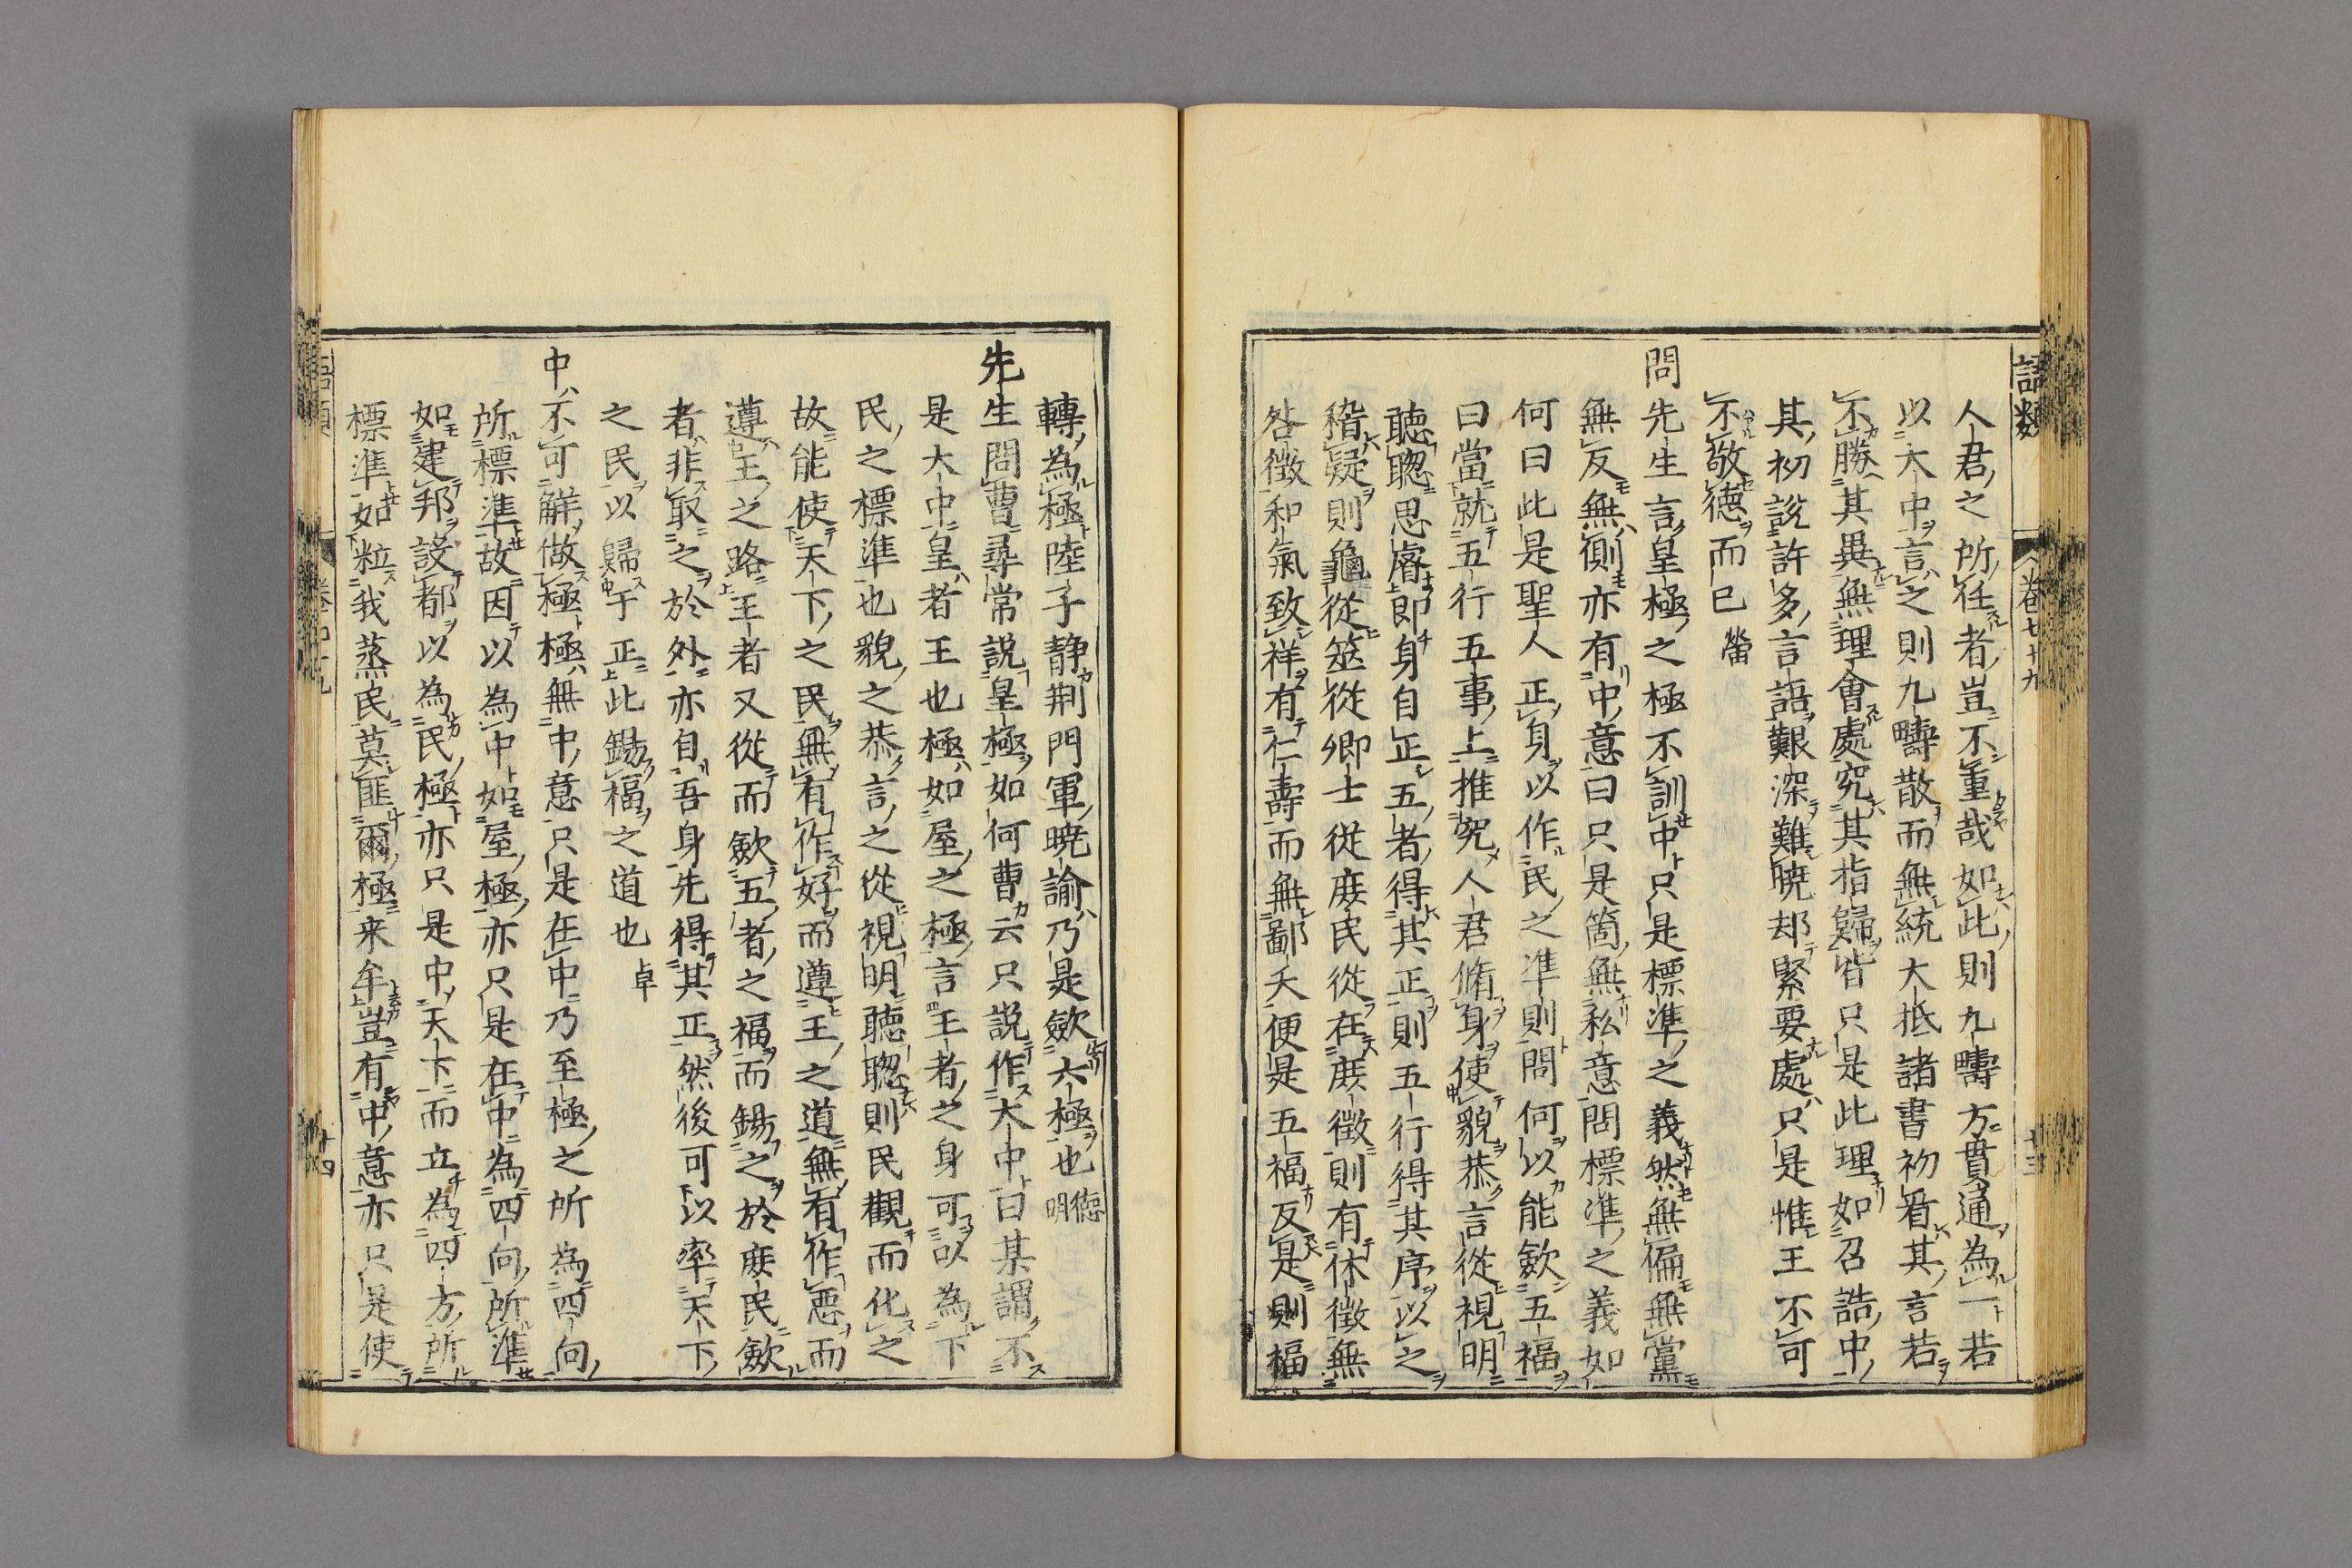 語類 卷七十九 十三
人君之所任者豈不重哉如此則九疇方貫通為一若
以大中言之則九疇散而無統大抵諸書初看其言若
不勝其異無理會處究其指歸皆只是此理如召誥中
其初說許多言語艱深難曉却緊要處只是惟王不可
不敬德而已 㽦
問先生言皇極之極不訓中只是標準之義然無偏無黨
無反無側亦有中意曰只是箇無私意問標準之義如
何曰此是聖人正身以作民之準則問何以能斂五福
曰當就五行五事上推究人君脩身使貌恭言從視明
聽聰思睿即身自正五者得其正則五行得其序以之
稽疑則龜從筮從卿士從庶民從在庶徵則有休徵無
咎徵和氣致祥有仁壽而無鄙夭便是五福反是則福
轉為極陸子静荆門軍曉諭乃是斂六極也 德明
先生問曹尋常説皇極如何曹云只説作大中曰某謂不
是大中皇者王也極如屋之極言王者之身可以為下
民之標準也貌之恭言之從視明聽聰則民觀而化之
故能使天下之民無有作好而遵王之道無有作惡而
遵王之路王者又從而斂五者之福而錫之於庶民斂
者非取之於外亦自吾身先得其正然後可以率天下
之民以歸于正此錫福之道也 卓
中不可解做極極無中意只是在中乃至極之所為四向
所標準故因以為中如屋極亦只是在中為四向所準
如建邦設都以為民極亦只是中天下而立為四方所
標準如粒我蒸民莫匪爾極来牟豈有中意亦只是使